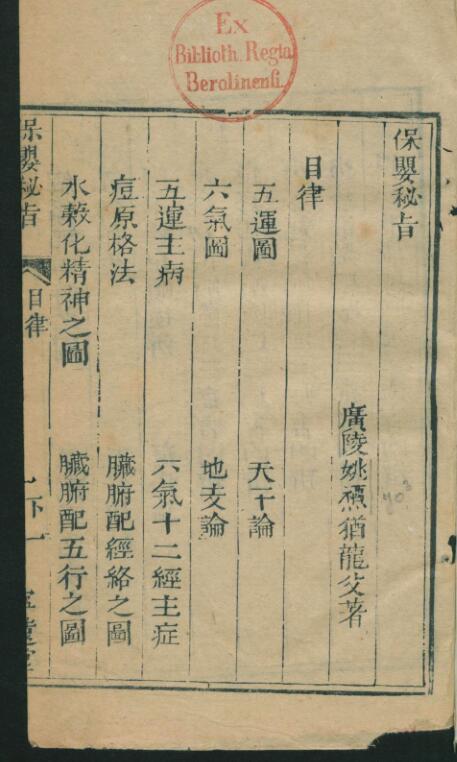 Ex
Biblioth. Regia
Berolinensi.
保嬰秘旨
廣陵姚猶龍父著
目律
五運圖 天干論
六氣圖 地支論
五運主病 六氣十二經主症
痘原格法 臟腑配經絡之圖
水穀化精神之圖 臟腑配五行之圖
保嬰秘旨 目律 下一